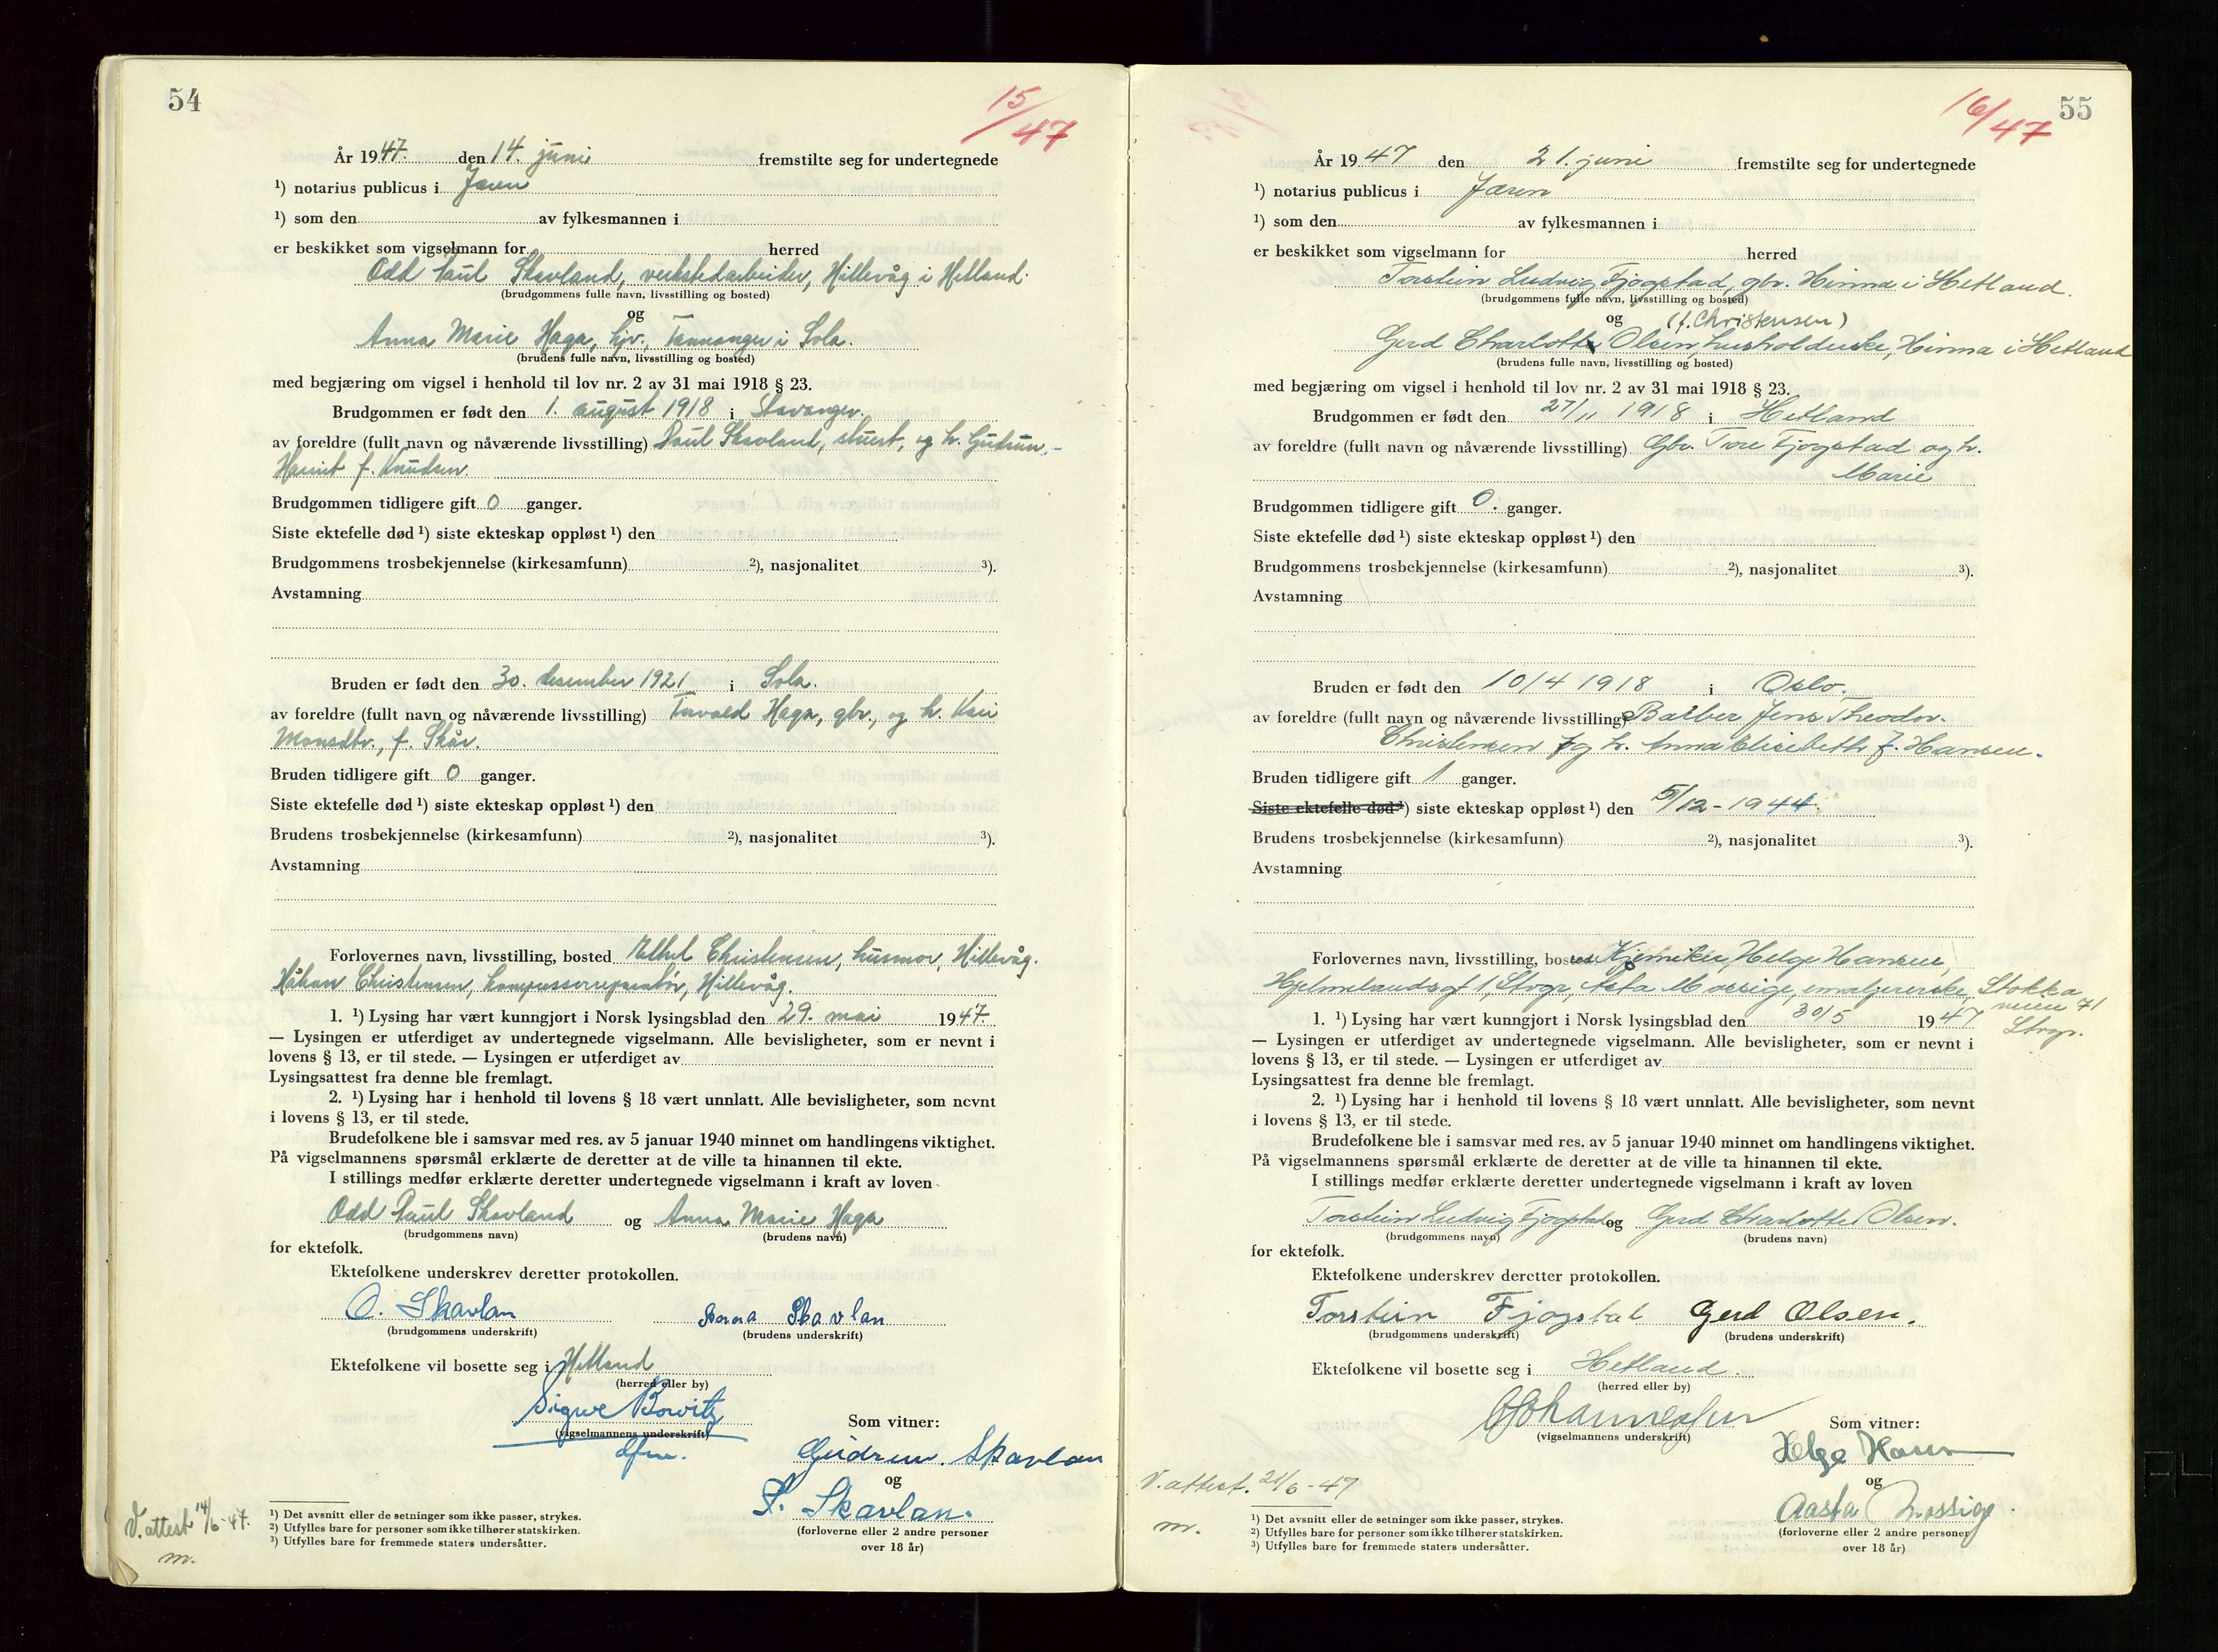 54
15/47
År 1947. den 14. juni fremstilte seg for undertegnede
¹) notarius publicus i Jæren
¹) som den av fylkesmannen i
er beskikket som vigselmann for herred
Odd Paul Skavland, verkstedarbeider, Hillevåg i Hetland.
(brudgommens fulle navn, livsstilling og bosted)
og
Anna Marie Haga, hjv., Tananger i Sola.
(brudens fulle navn, livsstilling og bosted)
med begjæring om vigsel i henhold til lov nr. 2 av 31 mai 1918 § 23.
Brudgommen er født den 1. august 1918 i Stavanger.
av foreldre (fullt navn og nåværende livsstilling) Paul Skavland, stuert, og h. Gudrun
Harriet f. Knudsen.
Brudgommen tidligere gift 0 ganger.
Siste ektefelle død ¹) siste ekteskap oppløst ¹) den
Brudgommens trosbekjennelse (kirkesamfunn) ²), nasjonalitet ³).
Avstamning
Bruden er født den 30. desember 1921 i Sola.
av foreldre (fullt navn og nåværende livsstilling) Torvald Haga, gbr., og h. Kari
Monsdtr., f. Skår.
Bruden tidligere gift 0 ganger.
Siste ektefelle død ¹) siste ekteskap oppløst ¹) den
Brudens trosbekjennelse (kirkesamfunn) ²), nasjonalitet ³).
Avstamning
Forlovernes navn, livsstilling, bosted Ethel Christensen, husmor, Hillevåg.
Håkon Christensen, kompressorreparatør, Hillevåg.
1. ¹) Lysing har vært kunngjort i Norsk lysingsblad den 29. mai 1947.
— Lysingen er utferdiget av undertegnede vigselmann. Alle bevisligheter, som er nevnt i
lovens § 13, er til stede. — Lysingen er utferdiget av
Lysingsattest fra denne ble fremlagt.
2. ¹) Lysing har i henhold til lovens § 18 vært unnlatt. Alle bevisligheter, som nevnt
i lovens § 13, er til stede.
Brudefolkene ble i samsvar med res. av 5 januar 1940 minnet om handlingens viktighet.
På vigselmannens spørsmål erklærte de deretter at de ville ta hinannen til ekte.
I stillings medfør erklærte deretter undertegnede vigselmann i kraft av loven
Odd Paul Skavland og Anna Marie Haga
(brudgommens navn) (brudens navn)
for ektefolk.
Ektefolkene underskrev deretter protokollen.
O. Skavlan Anna Skavlan
(brudgommens underskrift) (brudens underskrift)
Ektefolkene vil bosette seg i Hetland
(herred eller by)
Sigwe Bowitz
(vigselmannens underskrift)
dfm.
Som vitner:
Gudrun. Skavlan
og
P. Skavlan.
(forloverne eller 2 andre personer
over 18 år)
V. attest 14/6-47.
m.
¹) Det avsnitt eller de setninger som ikke passer, strykes.
²) Utfylles bare for personer som ikke tilhører statskirken.
³) Utfylles bare for fremmede staters undersåtter.
55
16/47
År 1947 den 21. juni fremstilte seg for undertegnede
¹) notarius publicus i Jæren
¹) som den av fylkesmannen i
er beskikket som vigselmann for herred
Torstein Ludvig Fjogstad, gbr. Hinna i Hetland.
(brudgommens fulle navn, livsstilling og bosted)
og (f. Christensen)
Gerd Charlotte Olsen, husholderske, Hinna i Hetland
(brudens fulle navn, livsstilling og bosted)
med begjæring om vigsel i henhold til lov nr. 2 av 31 mai 1918 § 23.
Brudgommen er født den 27/11 1918 i Hetland
av foreldre (fullt navn og nåværende livsstilling) Gbr. Tore Fjogstad og h.
Marie
Brudgommen tidligere gift 0. ganger.
Siste ektefelle død ¹) siste ekteskap oppløst ¹) den
Brudgommens trosbekjennelse (kirkesamfunn) ²), nasjonalitet ³).
Avstamning
Bruden er født den 10/4 1918 i Oslo.
av foreldre (fullt navn og nåværende livsstilling) Barber Jens Theodor
Christensen og h. Anna Elisebeth f. Hansen.
Bruden tidligere gift 1 ganger.
Siste ektefelle død ¹) siste ekteskap oppløst ¹) den 5/12-1944.
Brudens trosbekjennelse (kirkesamfunn) ²), nasjonalitet ³).
Avstamning
Forlovernes navn, livsstilling, bosted Kjemiker, Helge Hansen,
Hjelmelandsgt 1, Stvgr, Asta Mossige, emaljererske, Stokka
veien 71
Stvgr.
1. ¹) Lysing har vært kunngjort i Norsk lysingsblad den 30/5 1947
— Lysingen er utferdiget av undertegnede vigselmann. Alle bevisligheter, som er nevnt i
lovens § 13, er til stede. — Lysingen er utferdiget av
Lysingsattest fra denne ble fremlagt.
2. ¹) Lysing har i henhold til lovens § 18 vært unnlatt. Alle bevisligheter, som nevnt
i lovens § 13, er til stede.
Brudefolkene ble i samsvar med res. av 5 januar 1940 minnet om handlingens viktighet.
På vigselmannens spørsmål erklærte de deretter at de ville ta hinannen til ekte.
I stillings medfør erklærte deretter undertegnede vigselmann i kraft av loven
Torstein Ludvig Fjogstad og Gerd Charlotte Olsen.
(brudgommens navn) (brudens navn)
for ektefolk.
Ektefolkene underskrev deretter protokollen.
Torstein Fjogstad Gerd Olsen.
(brudgommens underskrift) (brudens underskrift)
Ektefolkene vil bosette seg i Hetland.
(herred eller by)
(vigselmannens underskrift)
Som vitner:
Helge Hansen
og
Aasta Mossige.
(forloverne eller 2 andre personer
over 18 år)
V. attest. 21/6-47
m.
¹) Det avsnitt eller de setninger som ikke passer, strykes.
²) Utfylles bare for personer som ikke tilhører statskirken.
³) Utfylles bare for fremmede staters undersåtter.